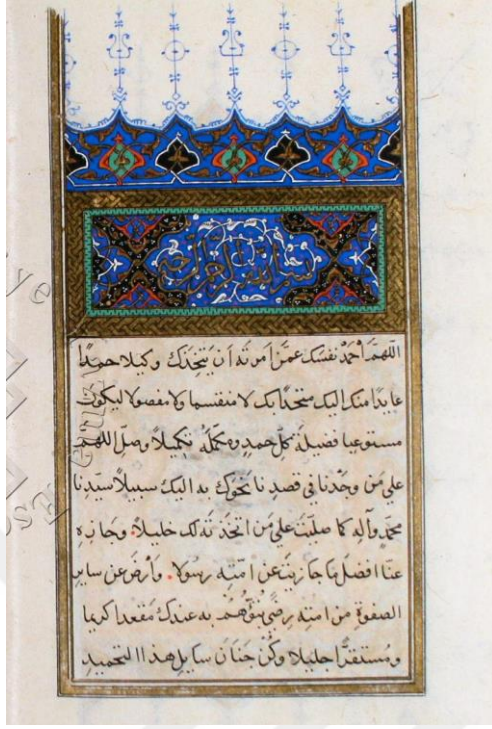 بسم الله الرحمن الرحيم
اللهمَّ أحمَدُ نفسَكَ عمّن أمرتَه أن يتّخِذَكَ وكيلا حمدًا
عايدًا منك إليك متحدًا بك لا منقسما ولا مفصولا ليكون
مستوعبا فضيلة كلّ حمدٍ ومكمّله تكميلاً وصلّ اللهم
على مَن وحّدنا في قصدنا نحوك به اليك سبيلاً سيّدنا
محمّد وآله كما صلّيتَ على مَن اتخذتَه لك خليلا وجازه
عنّا افضل ما جازيتَ عن امّتِه رسولا وأرضَ عن ساير
الصفوة من امته رضىً تبوّئهم به عندك مَقعدا كريما
ومُستقرًّا جليلا وكن سايل هذا التحميد